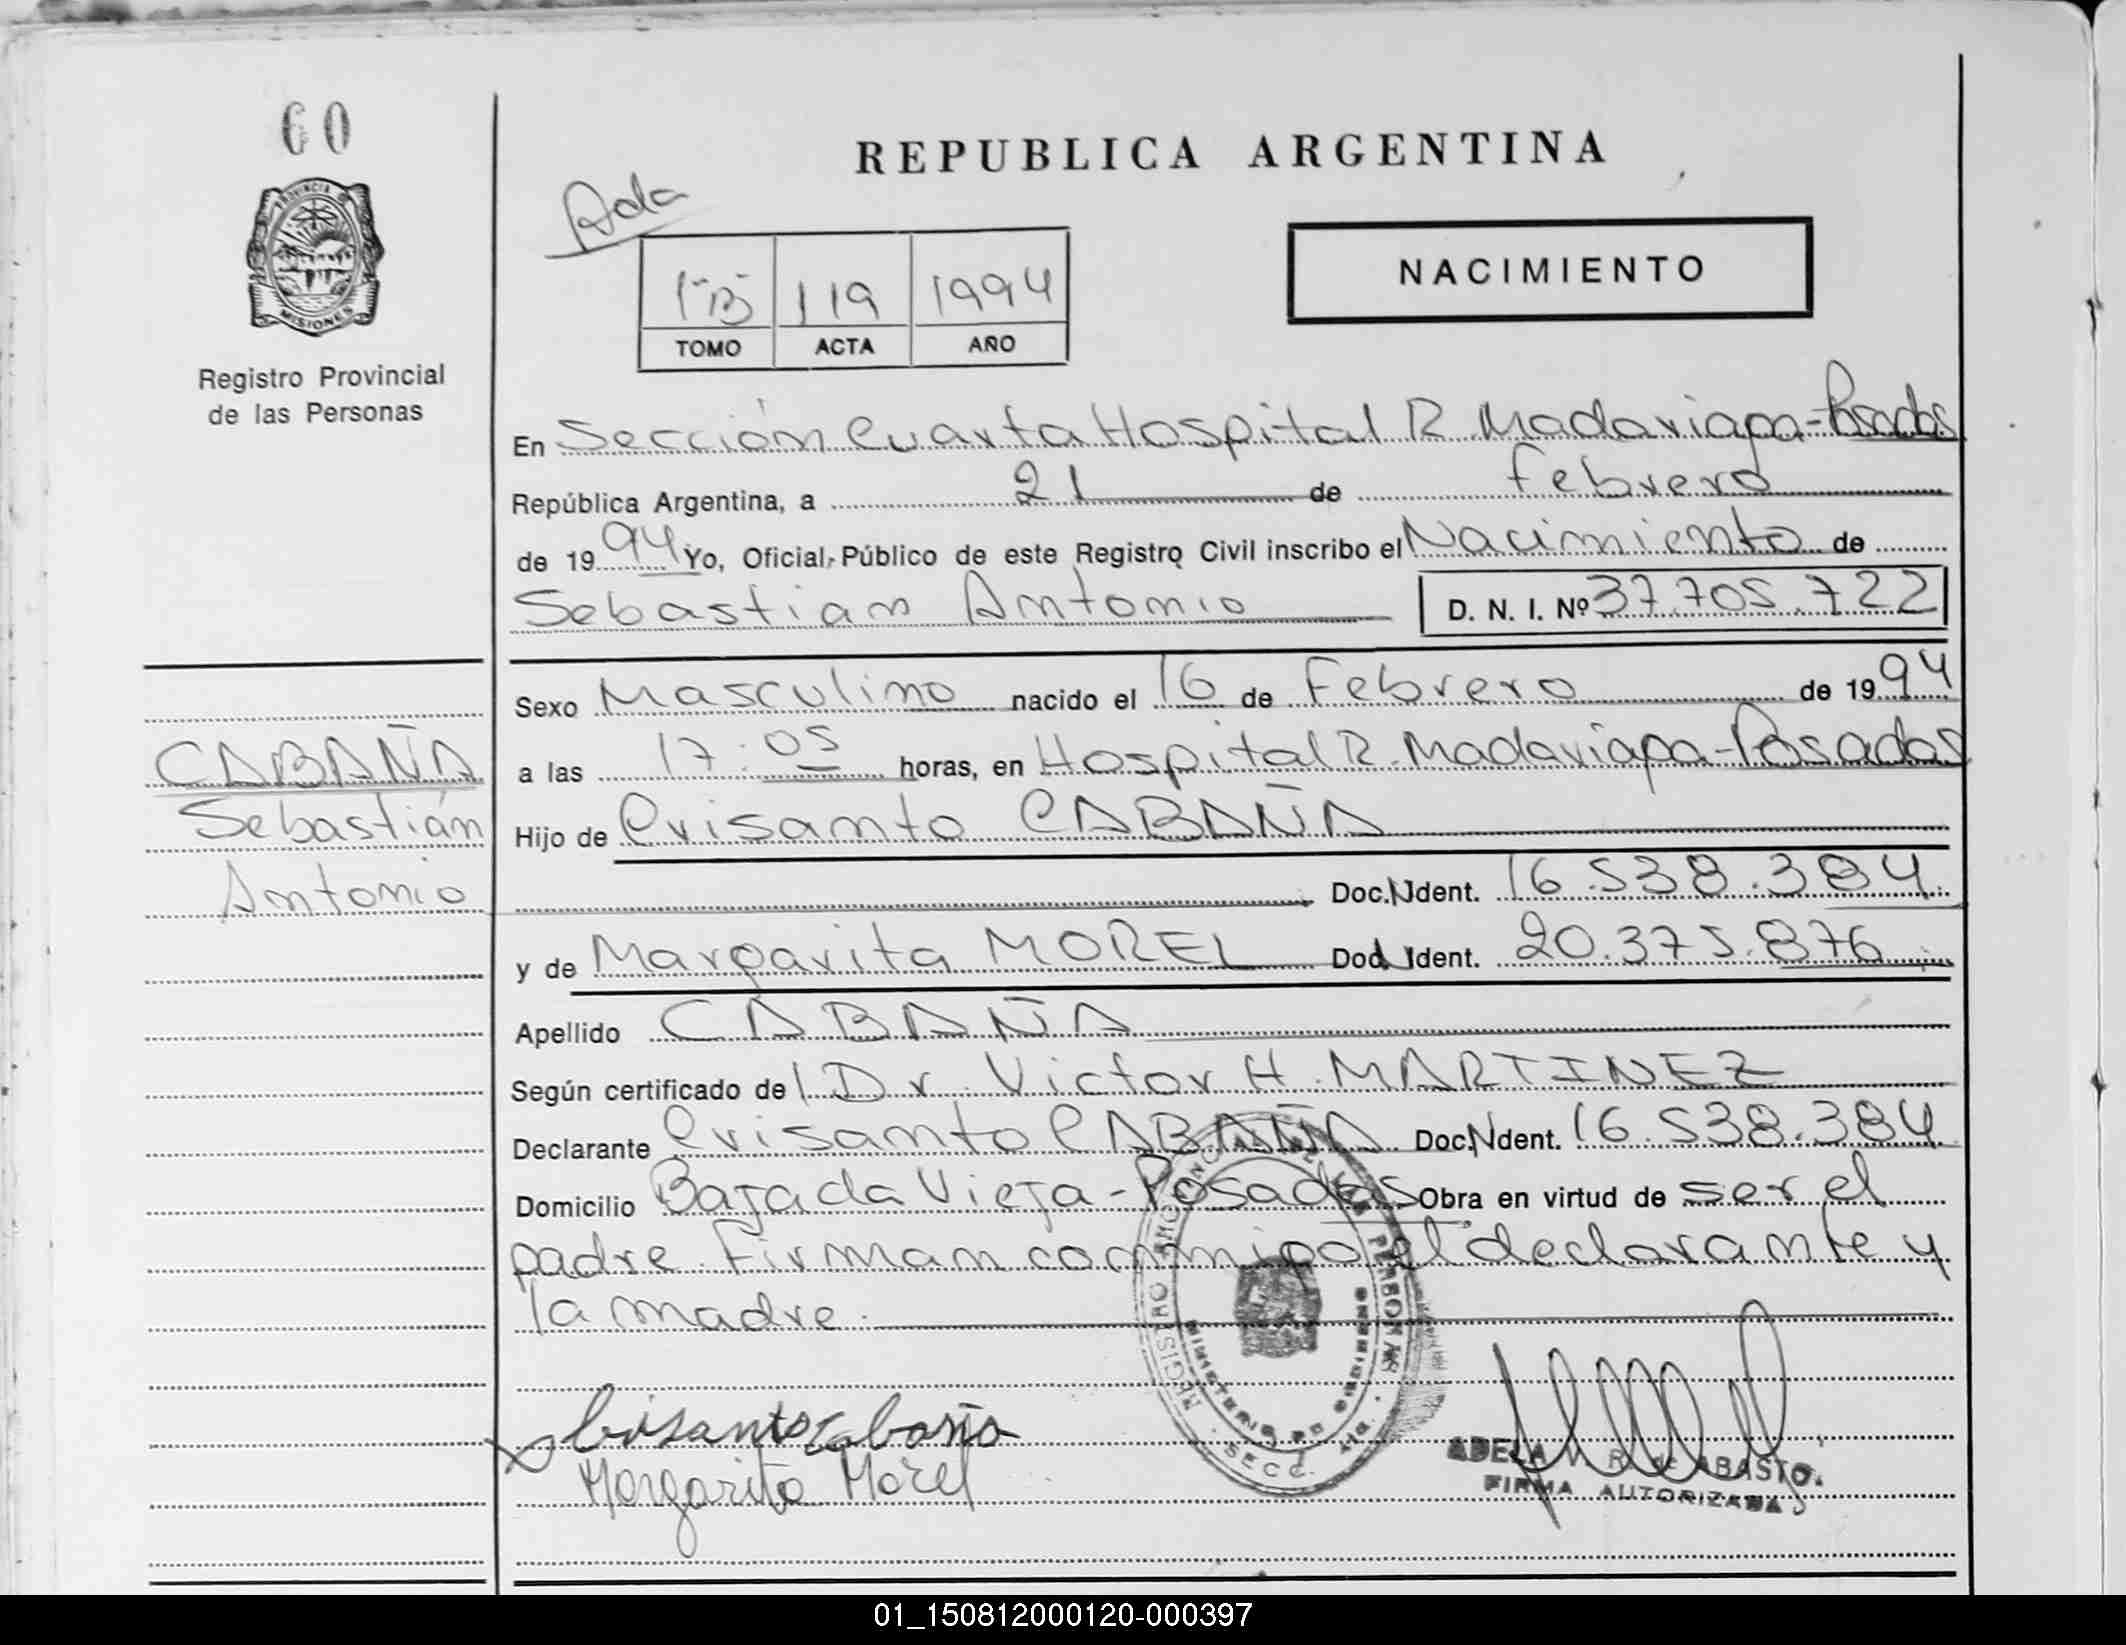 60
PROVINCIA DE
MISIONES
Registro Provincial
de las Personas
REPUBLICA ARGENTINA
Ada
NACIMIENTO
1ºB 119 1994
TOMO ACTA AÑO
En Sección Cuarta Hospital R. Madariaga - Posadas
República Argentina, a 21 de febrero
de 1994 Yo, Oficial Público de este Registro Civil inscribo el Nacimiento de
Sebastian Antonio D. N. I. Nº 37.705.722
Sexo Masculino nacido el 16 de Febrero de 1994
a las 17:05 horas, en Hospital R. Madariaga - Posadas
CABAÑA
Sebastián
Antonio
Hijo de Crisanto CABAÑA
Doc. Ident. 16.538.384
y de Margarita MOREL Doc. Ident. 20.375.876
Apellido CABAÑA
Según certificado del Dr. Victor H. MARTINEZ
Declarante Crisanto CABAÑA Doc. Ident. 16.538.384
Domicilio Bajada Vieja - Posadas Obra en virtud de ser el
padre. Firman conmigo el declarante y
la madre.
Crisanto Cabaña
Margarita Morel
REGISTRO PERSONAS
MINISTERIO DE GOBIERNO
SECC.
ADELA R. de ABASTO
FIRMA AUTORIZADA
01_150812000120-000397